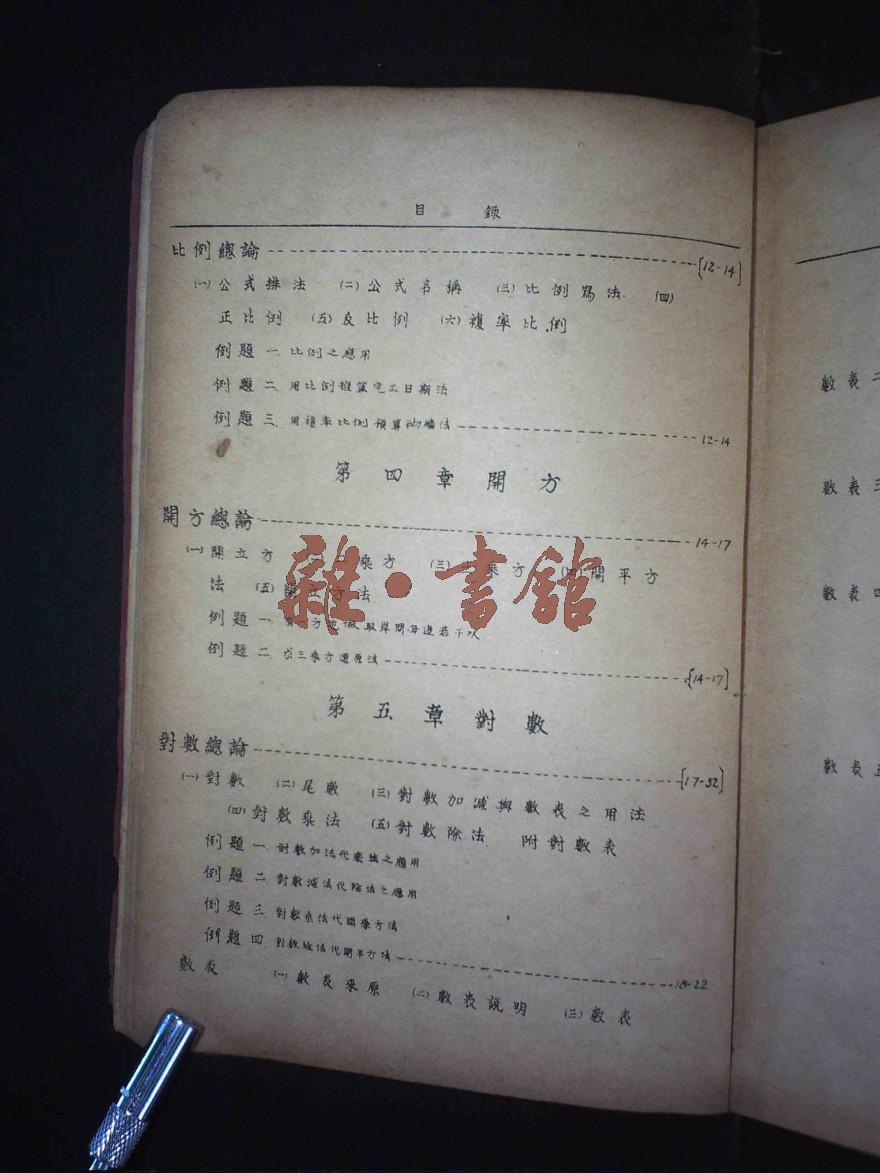 目 錄
比例總論 [12-14]
㈠公式排法 ㈡公式名稱 ㈢比例寫法 ㈣
正比例 ㈤反比例 ㈥複率比例
例題一 比例之應用
例題二 用比例推算完工日期法
例題三 用複率比例預算法 12-14
第四章開方
開方總論 14-17
㈠開立方 乘方 ㈢ 乘方 ㈣開平方
法 ㈤開 方法
例題一 方 取岸間每邊若干尺
例題二 求三乘方還原法 [14-17]
第五章對數
對數總論 [17-32]
㈠對數 ㈡尾數 ㈢對數加減與數表之用法
㈣對數乘法 ㈤對數除法 附對數表
例題一 對數加法代乘法之應用
例題二 對數減法代除法之應用
例題三 對數乘法代開乘方法
例題四 對數 法代開平方法 18-22
數表 ㈠數表來原 ㈡數表說明 ㈢數表
雜·書館
數表二
數表三
數表四
數表五